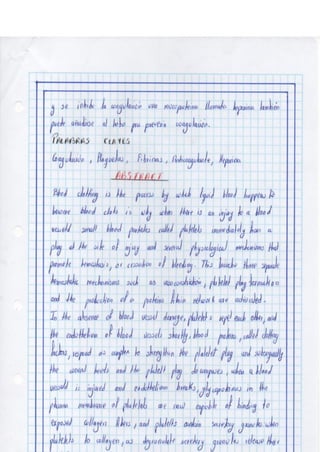 y se inhibe la coagulación una mucoproteina llamada heparina también
puede añadirse al tubo para prevenir coagulación.
PALABRAS CLAVES
Coagulación, Plaquetas, Fibrinas, Anticoagulante, Heparina
ABSTRACT
Blood clotting is the process by which liquid blood happens to
become blood clots is why when there is an injury to a blood
vessel small blood particles called platelets immediately form a
plug at the site of injury and several physiological mechanisms that
promote hemostasis, or cessation of bleeding. This involves three separate
hemostatic mechanisms such as vasoconstriction, platelet plug formation
and the production of a proteins fibrin network are activated.
In the absence of blood vessel damage, platelets repel each other, and
the endothelium of blood vessels shortly, blood proteins, called clotting
factors, respond as angles to strengthen the platelet plug and subsequently
the wound heals and the platelet plug disappears, when a blood
vessel is injured and endothelium breaks, glycoproteins in the
plasma membrane of platelets are now capable of binding to
exposed collagen fibers, and platelets contain secretory granules when
platelets to collagen, as degranulate secretory granules release their